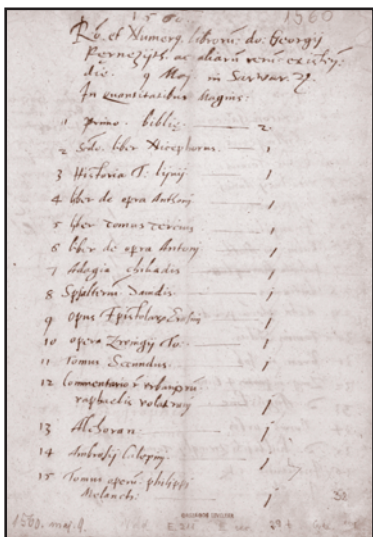 1560
Rõ. et Numerq librorũ: do: Georgij
Perneʒÿth. ac aliarũ rerũ
die. 9 Maj. in Sarvar.
In quantitatibus Magnis:
1 primo. biblię. 2.
2 Sedo. liber Nicephorus. 1
3 Historia T: lÿuij 1
4 liber de opra Anthonj 1
5 liber Tomus tercius 1
6 liber de opra Antonj 1
7 Adagia chiliadis 1
8 Spsalteriũ Dauidis 1
9 opus Epistolarũ Erasmi 1
10 opera Zwingÿ To: 1
11 Tomus Secundus. 1
12 Commentarior vrbanorũ
raphaelis volaterÿ 1
13 Alchoran: 1
14 Ambrosÿ Calepinj. 1
15 Tomus operũ: philippi
Melanch: 1
1560. maj. 9.